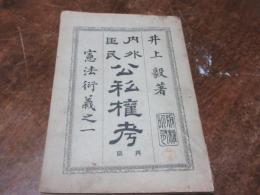 井上毅著
内外
臣民
公私権考
再版
憲法衍義之一